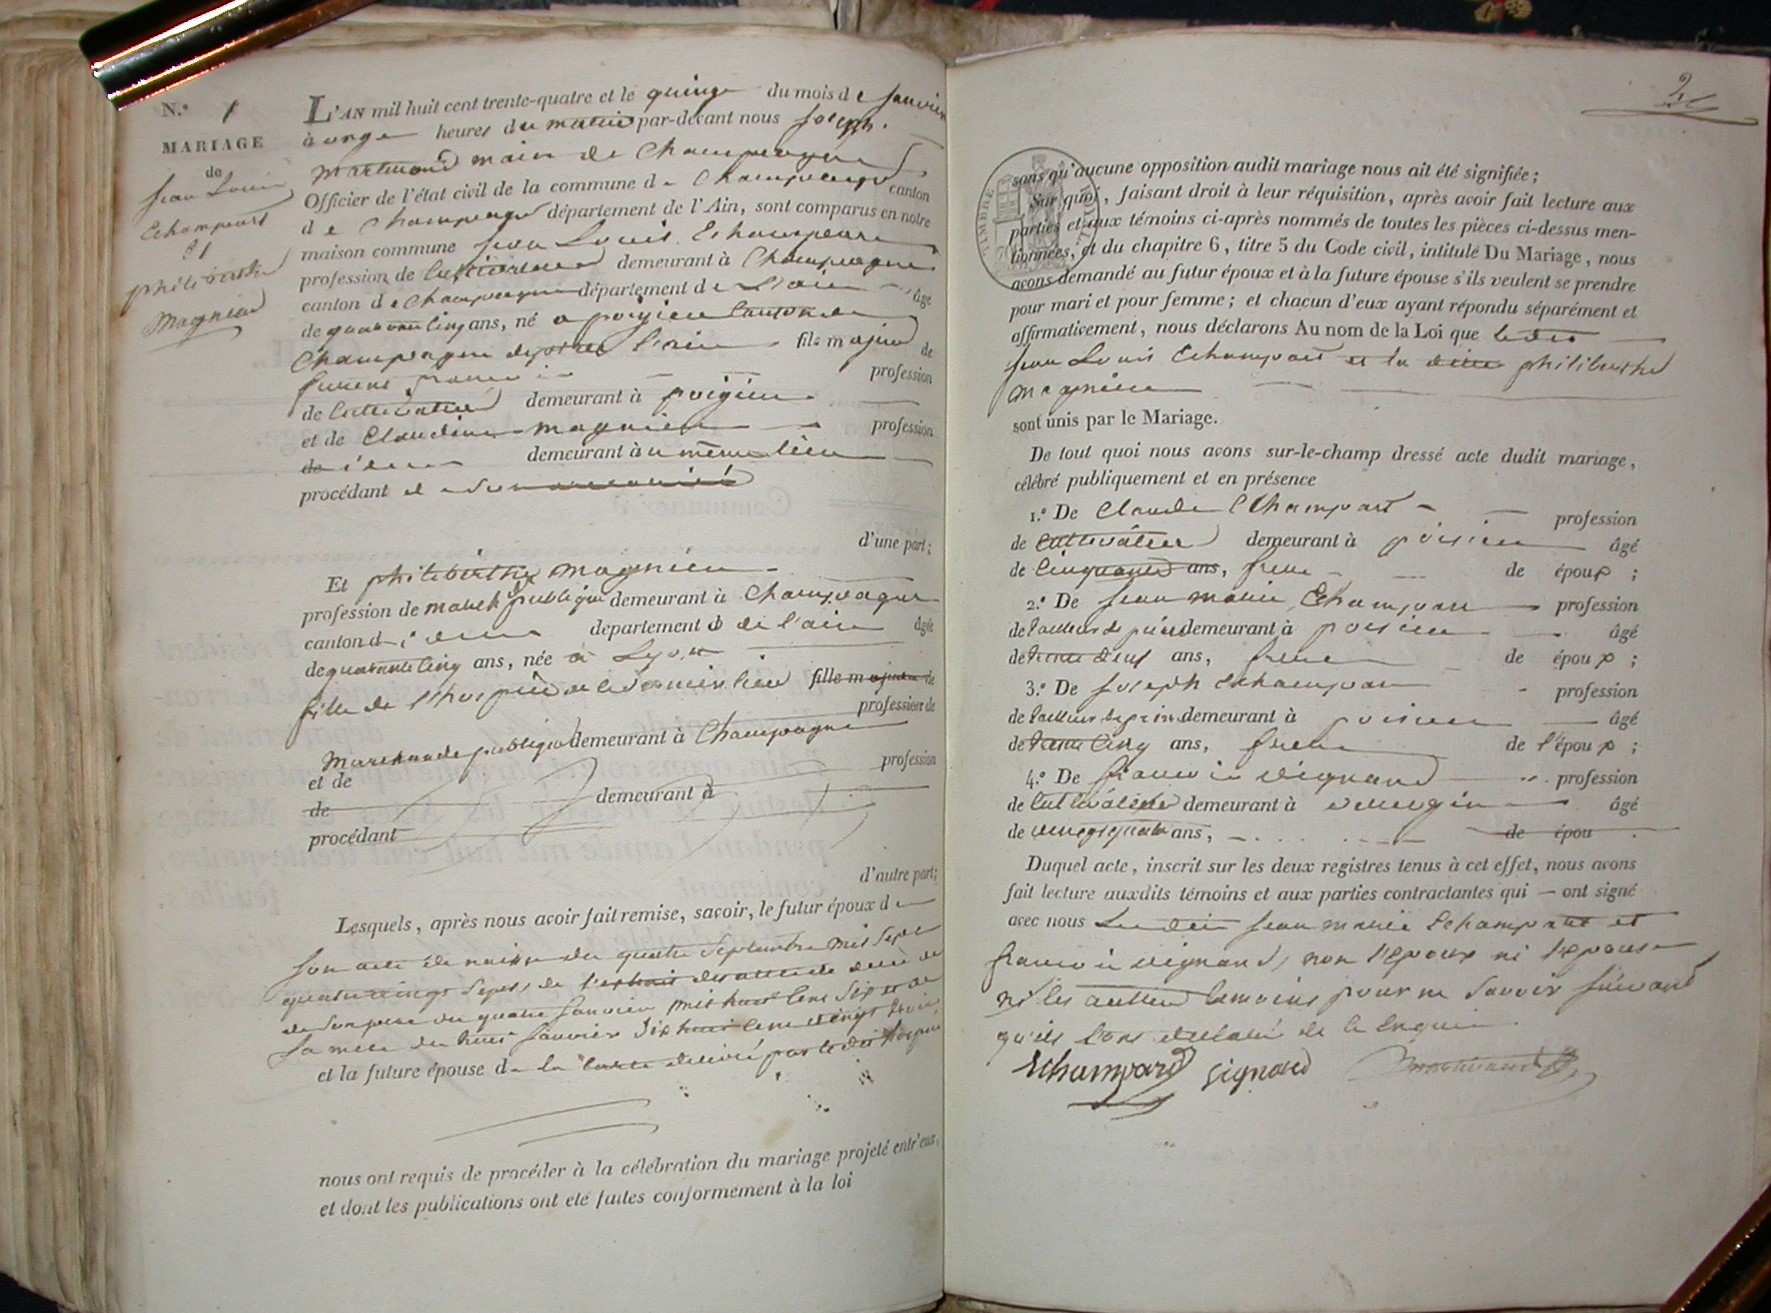 N.º 1
MARIAGE
de
Jean Louis
Echampard
et
philiberthe
Magnien
L'AN mil huit cent trente-quatre et le quinze du mois de Janvier
à onze heures du matin par-devant nous Joseph
Martinand maire de Champagne
Officier de l'état civil de la commune de Champagne canton
de Champagne département de l'Ain, sont comparus en notre
maison commune Jean Louis Echampard
profession de Cultivateur demeurant à Champagne
canton de Champagne département de L'ain âgé
de quarante cinq ans, né à poizieu Canton de
Champagne fils majeur de
profession
de Cultivateur demeurant à poizieu
et de Claudine Magnien profession
de idem demeurant à u même lieu
procédant
d'une part;
Et philiberthe Magnien
profession de publique demeurant à Champagne
canton d idem département d de l'ain âgée
de quarante cinq ans, née à Lyon
fille de l'hospice de ce dernier lieu fille majeure de
profession de
Marchande publique demeurant à Champagne
et de profession
de demeurant à
procédant
d'autre part;
Lesquels, après nous avoir fait remise, savoir, le futur époux d e
son acte de naiss. du quatre Septembre mil sept
quatre vingt sept, de l'extrait des actes de décès de
de son père du quatre Janvier mil huit cent six et de
sa mère du huit Janvier dix huit cent vingt trois,
et la future épouse de la délivré par le dit hospice
nous ont requis de procéder à la célébration du mariage projeté entr'eux,
et dont les publications ont été faites conformément à la loi
2
TIMBRE
sans qu'aucune opposition audit mariage nous ait été signifiée;
Sur quoi, faisant droit à leur réquisition, après avoir fait lecture aux
parties et aux témoins ci-après nommés de toutes les pièces ci-dessus men-
tionnées, et du chapitre 6, titre 5 du Code civil, intitulé Du Mariage, nous
avons demandé au futur époux et à la future épouse s'ils veulent se prendre
pour mari et pour femme; et chacun d'eux ayant répondu séparément et
affirmativement, nous déclarons Au nom de la Loi que le dit
Jean Louis Echampard et la dite philiberthe
Magnien
sont unis par le Mariage.
De tout quoi nous avons sur-le-champ dressé acte dudit mariage,
célébré publiquement et en présence
1.º De Claude Echampard profession
de Cultivateur demeurant à poisieu âgé
de Cinquante ans, frere de époux;
2.º De Jean Marie Echampard profession
de tailleur de pierre demeurant à poisieu âgé
de trente deux ans, frere de époux;
3.º De Joseph Echampard profession
de tailleur de pierre demeurant à poisieu âgé
de trente cinq ans, frere de l'époux;
4.º De francois Vignand profession
de Cultivateur demeurant à âgé
de vingt quatre ans, de épou
Duquel acte, inscrit sur les deux registres tenus à cet effet, nous avons
fait lecture auxdits témoins et aux parties contractantes qui – ont signé
avec nous Le dit Jean Marie Echampard et
francois Vignand, non l'epoux ni l'epouse
ni les autres temoins pour ne Savoir suivant
qu'ils l'ont declaré de ce enquis
Echampard Vignand Martinand